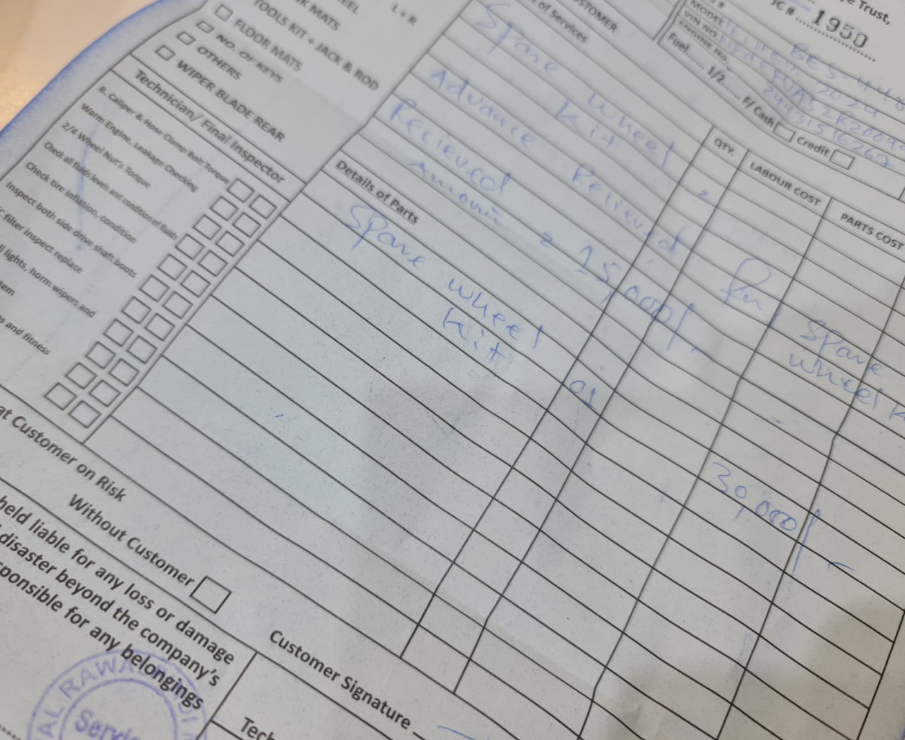 L + R
MATS
TOOLS KIT + JACK & ROD
FLOOR MATS
NO. OF KEYS
OTHERS
WIPER BLADE REAR
Technician/ Final Inspector
B. Caliper & Hose Clamp Bolt Torque
Warm Engine, Leakage Checking
2/4 Wheel Nut's Torque
Check all fluids levels and condition of fluids
Check tire inflation, condition
Inspect both side drive shaft boots
filter inspect replace
lights, horn wipers and
and fitness
at Customer on Risk
Without Customer
held liable for any loss or damage
disaster beyond the company's
ponsible for any belongings
Customer Signature
Trust,
1950
MODEL
2024
VIN NO.
Fuel
1/2
F/ Cash
Credit
of Services
QTY.
LABOUR COST
PARTS COST
Spare wheel
Kit
Advance Recieved for Spare
wheel K
Recieved
Amount = 15,000/-
Details of Parts
Spare wheel
Kit
01
30,000/-
AL RAWA